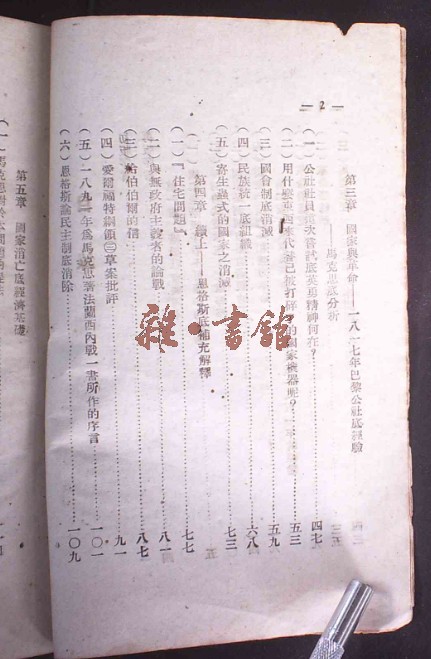 — 2 —
第三章 國家與革命——一八一七年巴黎公社底經驗
——馬克思底分析
(一)公社社員這次嘗試底英勇精神何在?……四七
(二)用什麼東西代替已被打碎了的國家機器呢?……五三
(三)國會制底消滅……五九
(四)民族統一底組織……六八
(五)寄生蟲式的國家之消滅……七三
第四章 續上——恩格斯底補充解釋……七七
(一)「住宅問題」
(二)與無政府主義者的論戰……八一
(三)給伯伯爾的信……八七
(四)愛爾福特綱領㊂草案批評……九一
(五)一八九一年為馬克思著法蘭西內戰一書所作的序言……一〇一
(六)恩格斯論民主制底消除……一〇九
第五章 國家消亡底經濟基礎
(一)馬克思對於
雜·書館